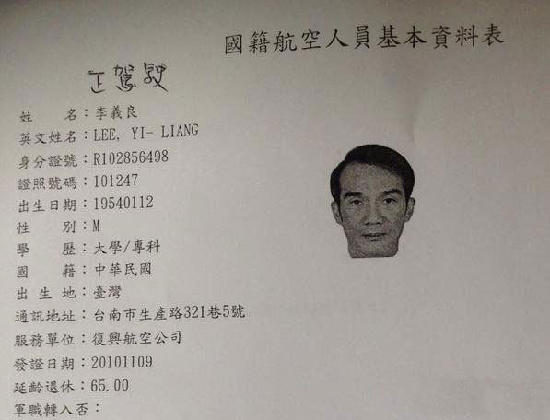 國籍航空人員基本資料表
正駕駛
姓 名：李義良
英文姓名：LEE, YI- LIANG
身分證號：R102856498
證照號碼：101247
出生日期：19540112
性 別：M
學 歷：大學/專科
國 籍：中華民國
出 生 地：臺灣
通訊地址：台南市生產路321巷5號
服務單位：復興航空公司
發證日期：20101109
延齡退休：65.00
軍職轉入否：